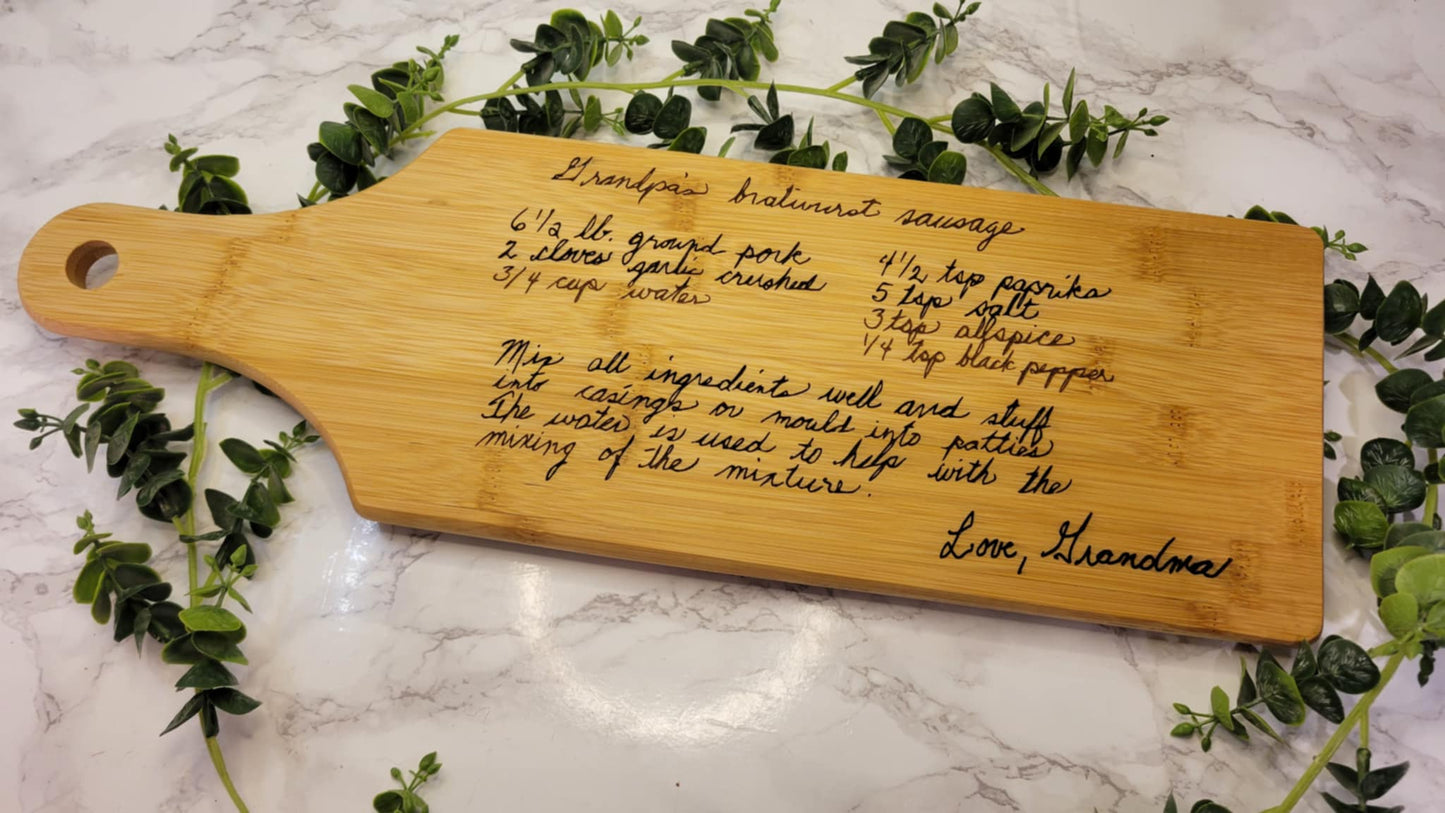 Grandpa's bratwurst sausage
6 1/2 lb. ground pork
2 cloves garlic crushed
3/4 cup water
4 1/2 tsp paprika
5 tsp salt
3 tsp allspice
1/4 tsp black pepper
Mix all ingredients well and stuff
into casings or mould into patties
The water is used to help with the
mixing of the mixture.
Love, Grandma